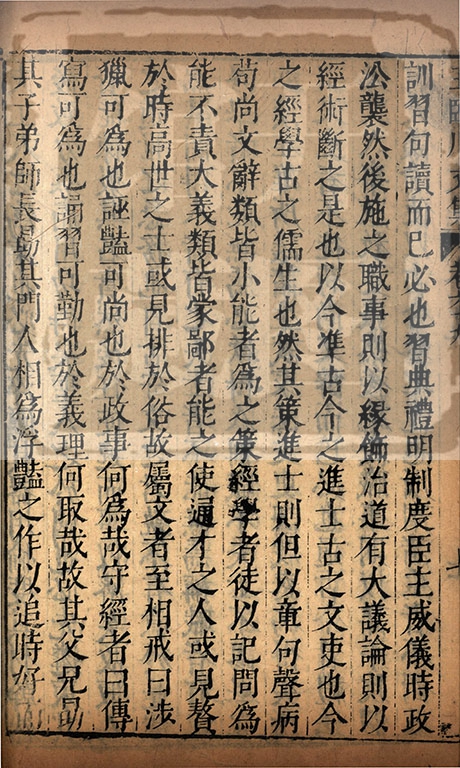 訓習句讀而巳必也習典禮明制度臣主威儀時政
㳂襲然後施之職事則以緣飾治道有大議論則以
經術斷之是也以今凖古今之進士古之文吏也今
之經學古之儒生也然其策進士則但以章句聲病
苟尚文辭類皆小能者為之策經學者徒以記問為
能不責大義類皆蒙鄙者能之使通才之人或見贅
於時高世之士或見排於俗故屬文者至相戒曰涉
獵可為也誣豔可尚也於政事何為哉守經者曰傳
寫可為也誦習可勤也於義理何取哉故其父兄勗
其子弟師長勗其門人相為浮豔之作以追時好而